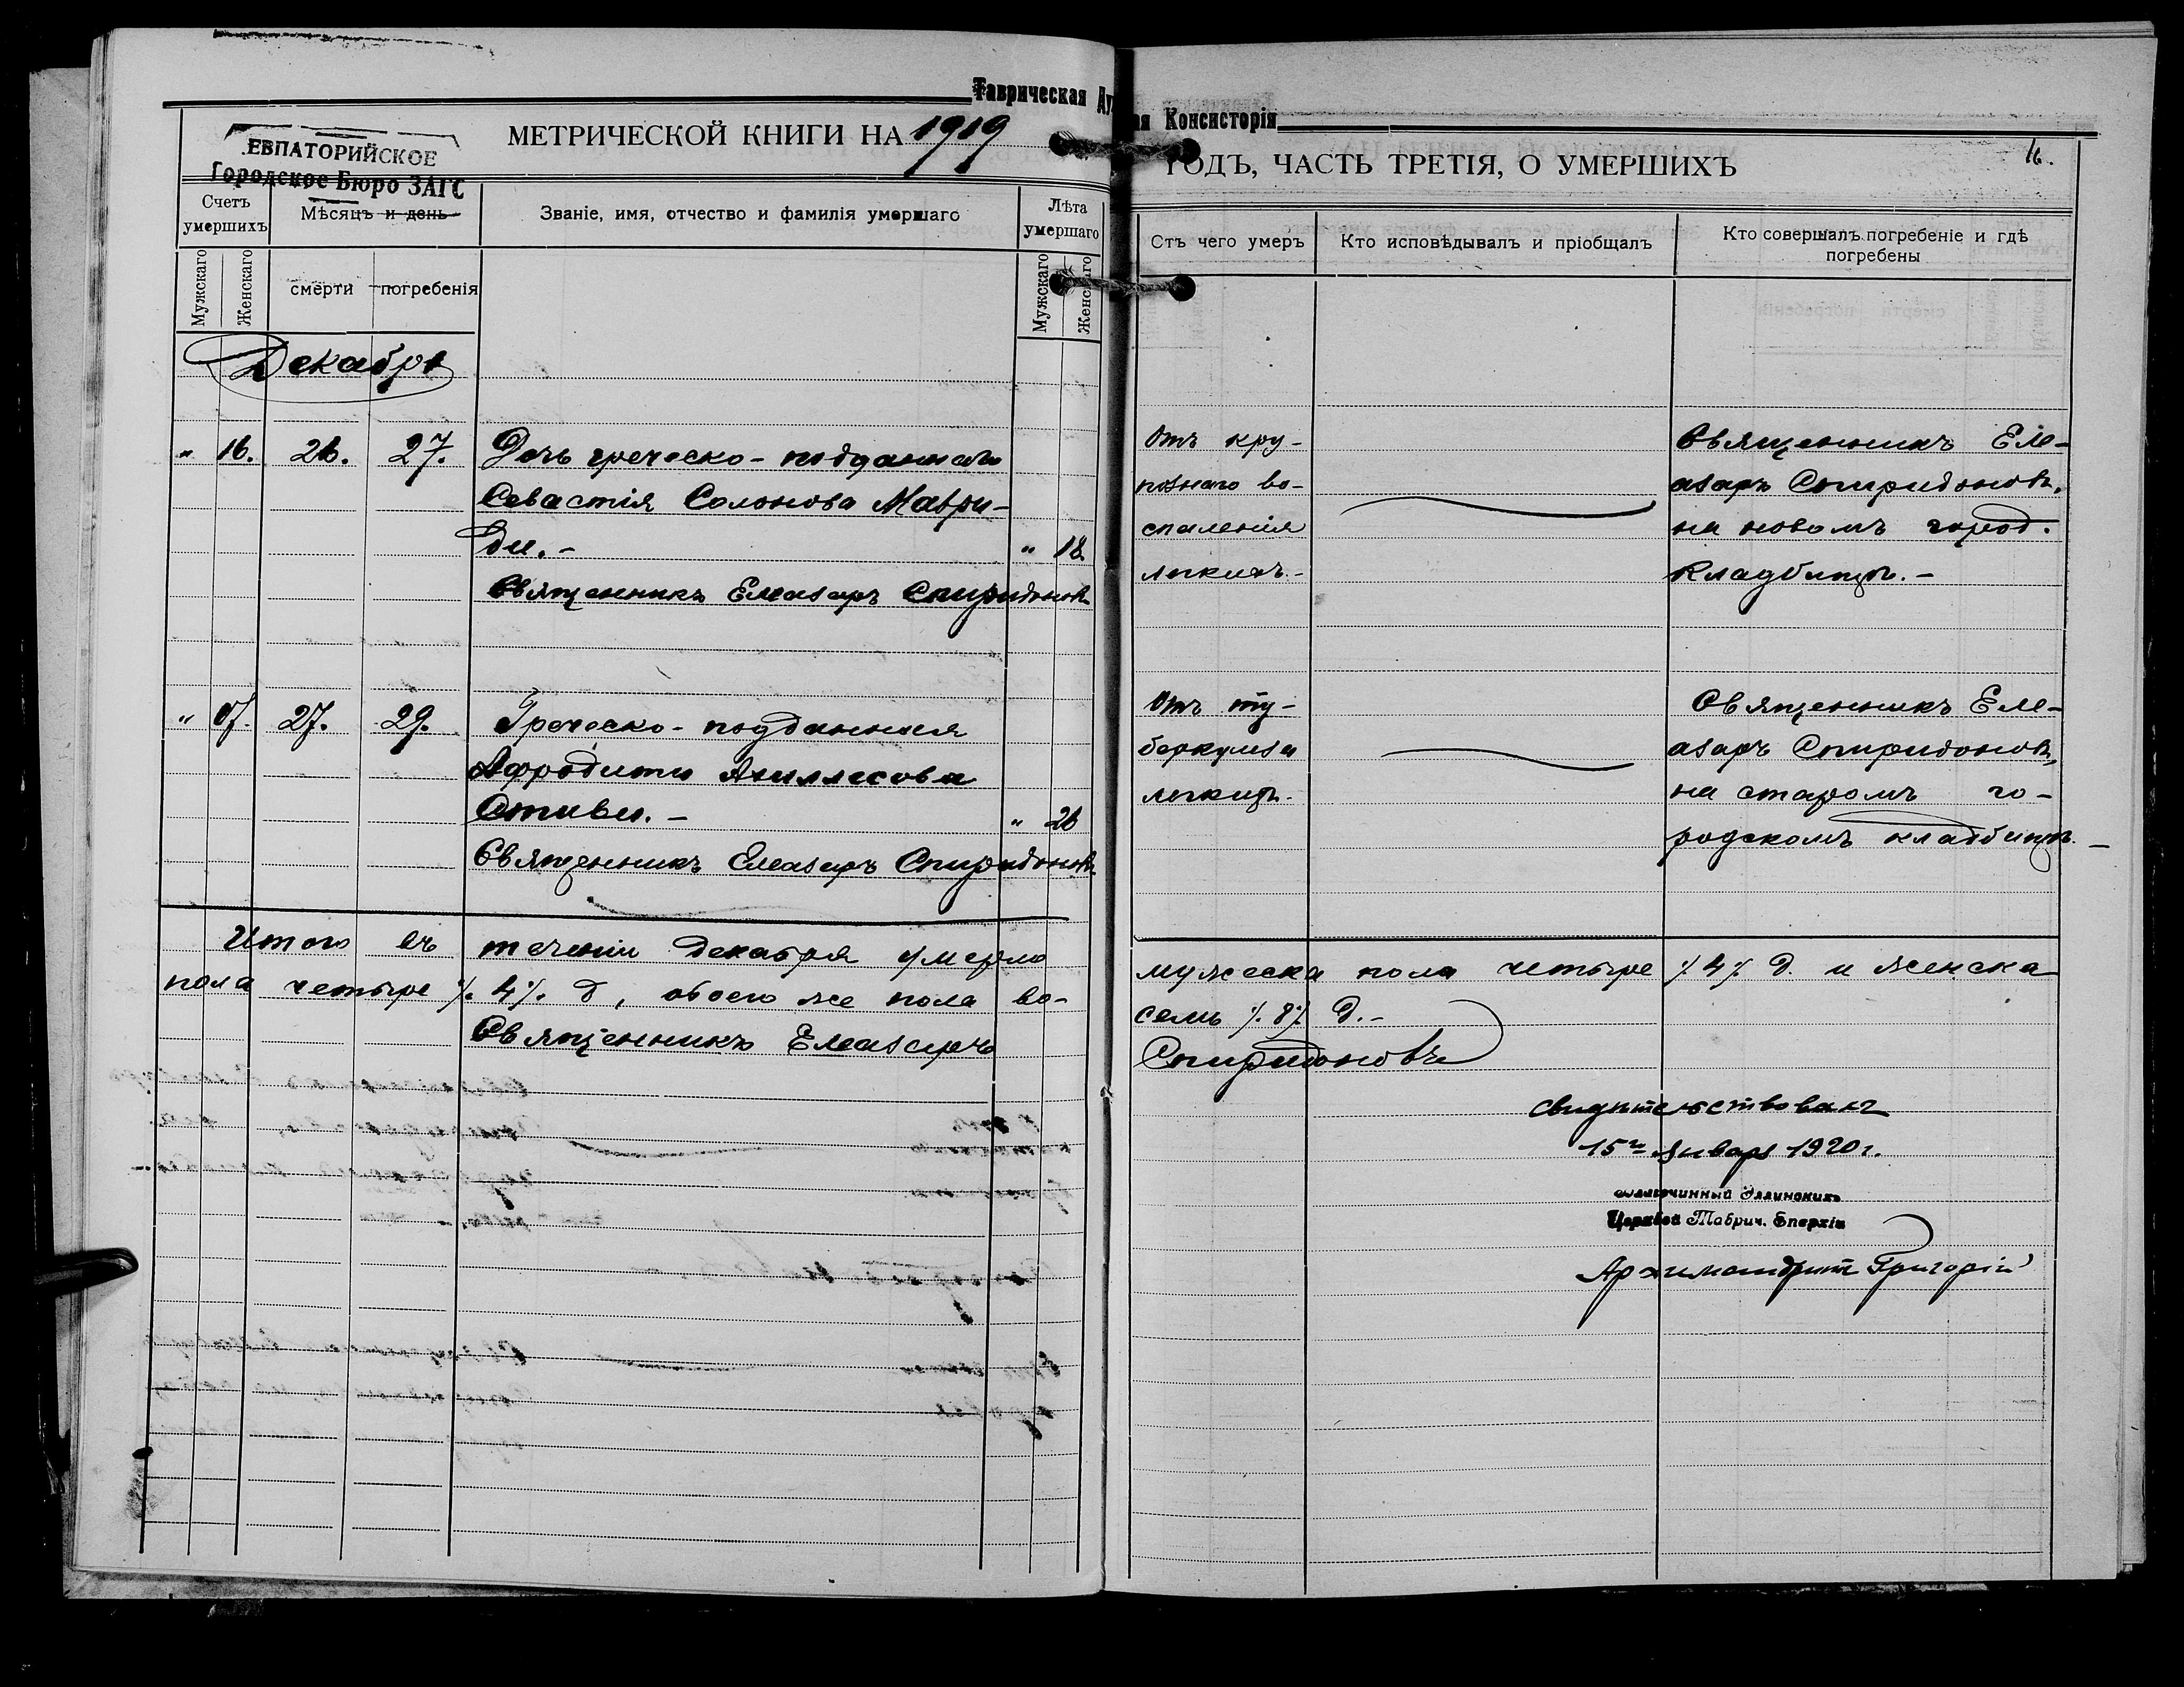 Таврическая Ду
ая Консисторія
МЕТРИЧЕСКОЙ КНИГИ НА 1919
ГОДЪ, ЧАСТЬ ТРЕТІЯ, О УМЕРШИХЪ
16.
ЕВПАТОРИЙСКОЕ
Городское Бюро ЗАГС
Счетъ умершихъ
Мужскаго
Женскаго
Мѣсяцъ и день
смерти
погребенія
Званіе, имя, отчество и фамилія умершаго
Лѣта умершаго
Мужскаго
Женскаго
Отъ чего умеръ
Кто исповѣдывалъ и пріобщалъ
Кто совершалъ погребеніе и гдѣ
погребены
Декабрь
" 16. 26. 27. Дочь греческо-подданнаго
Севастія Солонова Маври-
ди. - " 18.
Священникъ Елеазаръ Спиридоновъ
Отъ кру-
познаго во-
спаленія
легкихъ.-
Священникъ Еле-
азаръ Спиридоновъ,
на новомъ город.
кладбищѣ.-
" 17. 27. 29. Греческо-подданная
Афродита Ахиллесова
Стиви. - " 26
Священникъ Елеазаръ Спиридоновъ
Отъ ту-
беркулеза
легкихъ.
Священникъ Еле-
азаръ Спиридоновъ,
на старомъ го-
родскомъ кладбищѣ. -
Итого въ теченіи декабря умерло мужеска пола четыре /.4/. д. и женска
пола четыре /.4/. д, обоего же пола во-семь /.8/. д.-
Священникъ Елеазаръ Спиридоновъ
Свидѣтельствовалъ
15го Января 1920 г.
Благочинный Эллинскихъ
Церквей Таврич. Епархіи
Архимандритъ Григорій